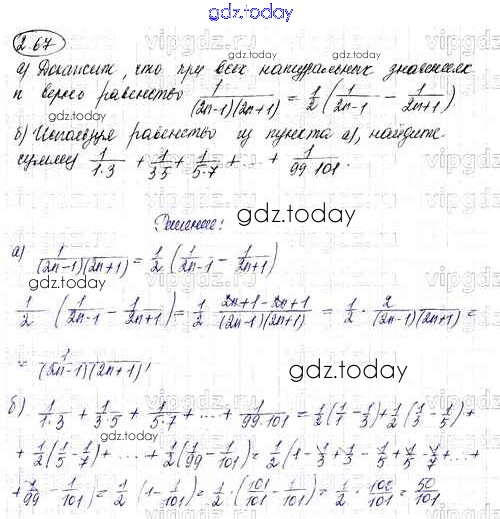 gdz.today
2.67
а) Докажите, что при всех натуральных значениях
n верно равенство 1/((2n-1)(2n+1)) = 1/2 (1/(2n-1) - 1/(2n+1))
б) Используя равенство из пункта а), найдите
сумму 1/(1·3) + 1/(3·5) + 1/(5·7) + ... + 1/(99·101).
Решение:
а) 1/((2n-1)(2n+1)) = 1/2 (1/(2n-1) - 1/(2n+1))
1/2 (1/(2n-1) - 1/(2n+1)) = 1/2 · (2n+1-2n+1)/((2n-1)(2n+1)) = 1/2 · 2/((2n-1)(2n+1)) =
= 1/((2n-1)(2n+1)),
б) 1/(1·3) + 1/(3·5) + 1/(5·7) + ... + 1/(99·101) = 1/2(1/1 - 1/3) + 1/2(1/3 - 1/5) +
+ 1/2(1/5 - 1/7) + ... + 1/2(1/99 - 1/101) = 1/2(1 - 1/3 + 1/3 - 1/5 + 1/5 - 1/7 + ... +
+ 1/99 - 1/101) = 1/2 (1 - 1/101) = 1/2 · (101/101 - 1/101) = 1/2 · 100/101 = 50/101